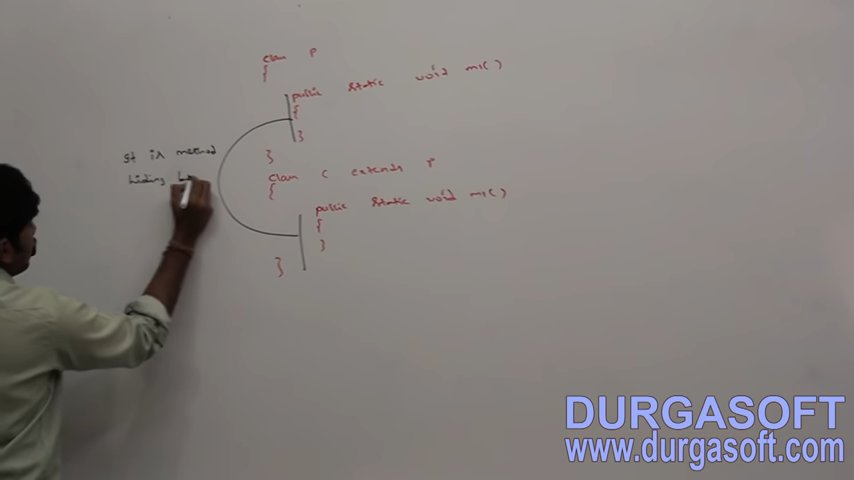 class P
{
public static void m1()
{
}
}
class C extends P
{
public static void m1()
{
}
}
It is method
hiding b
DURGASOFT
www.durgasoft.com